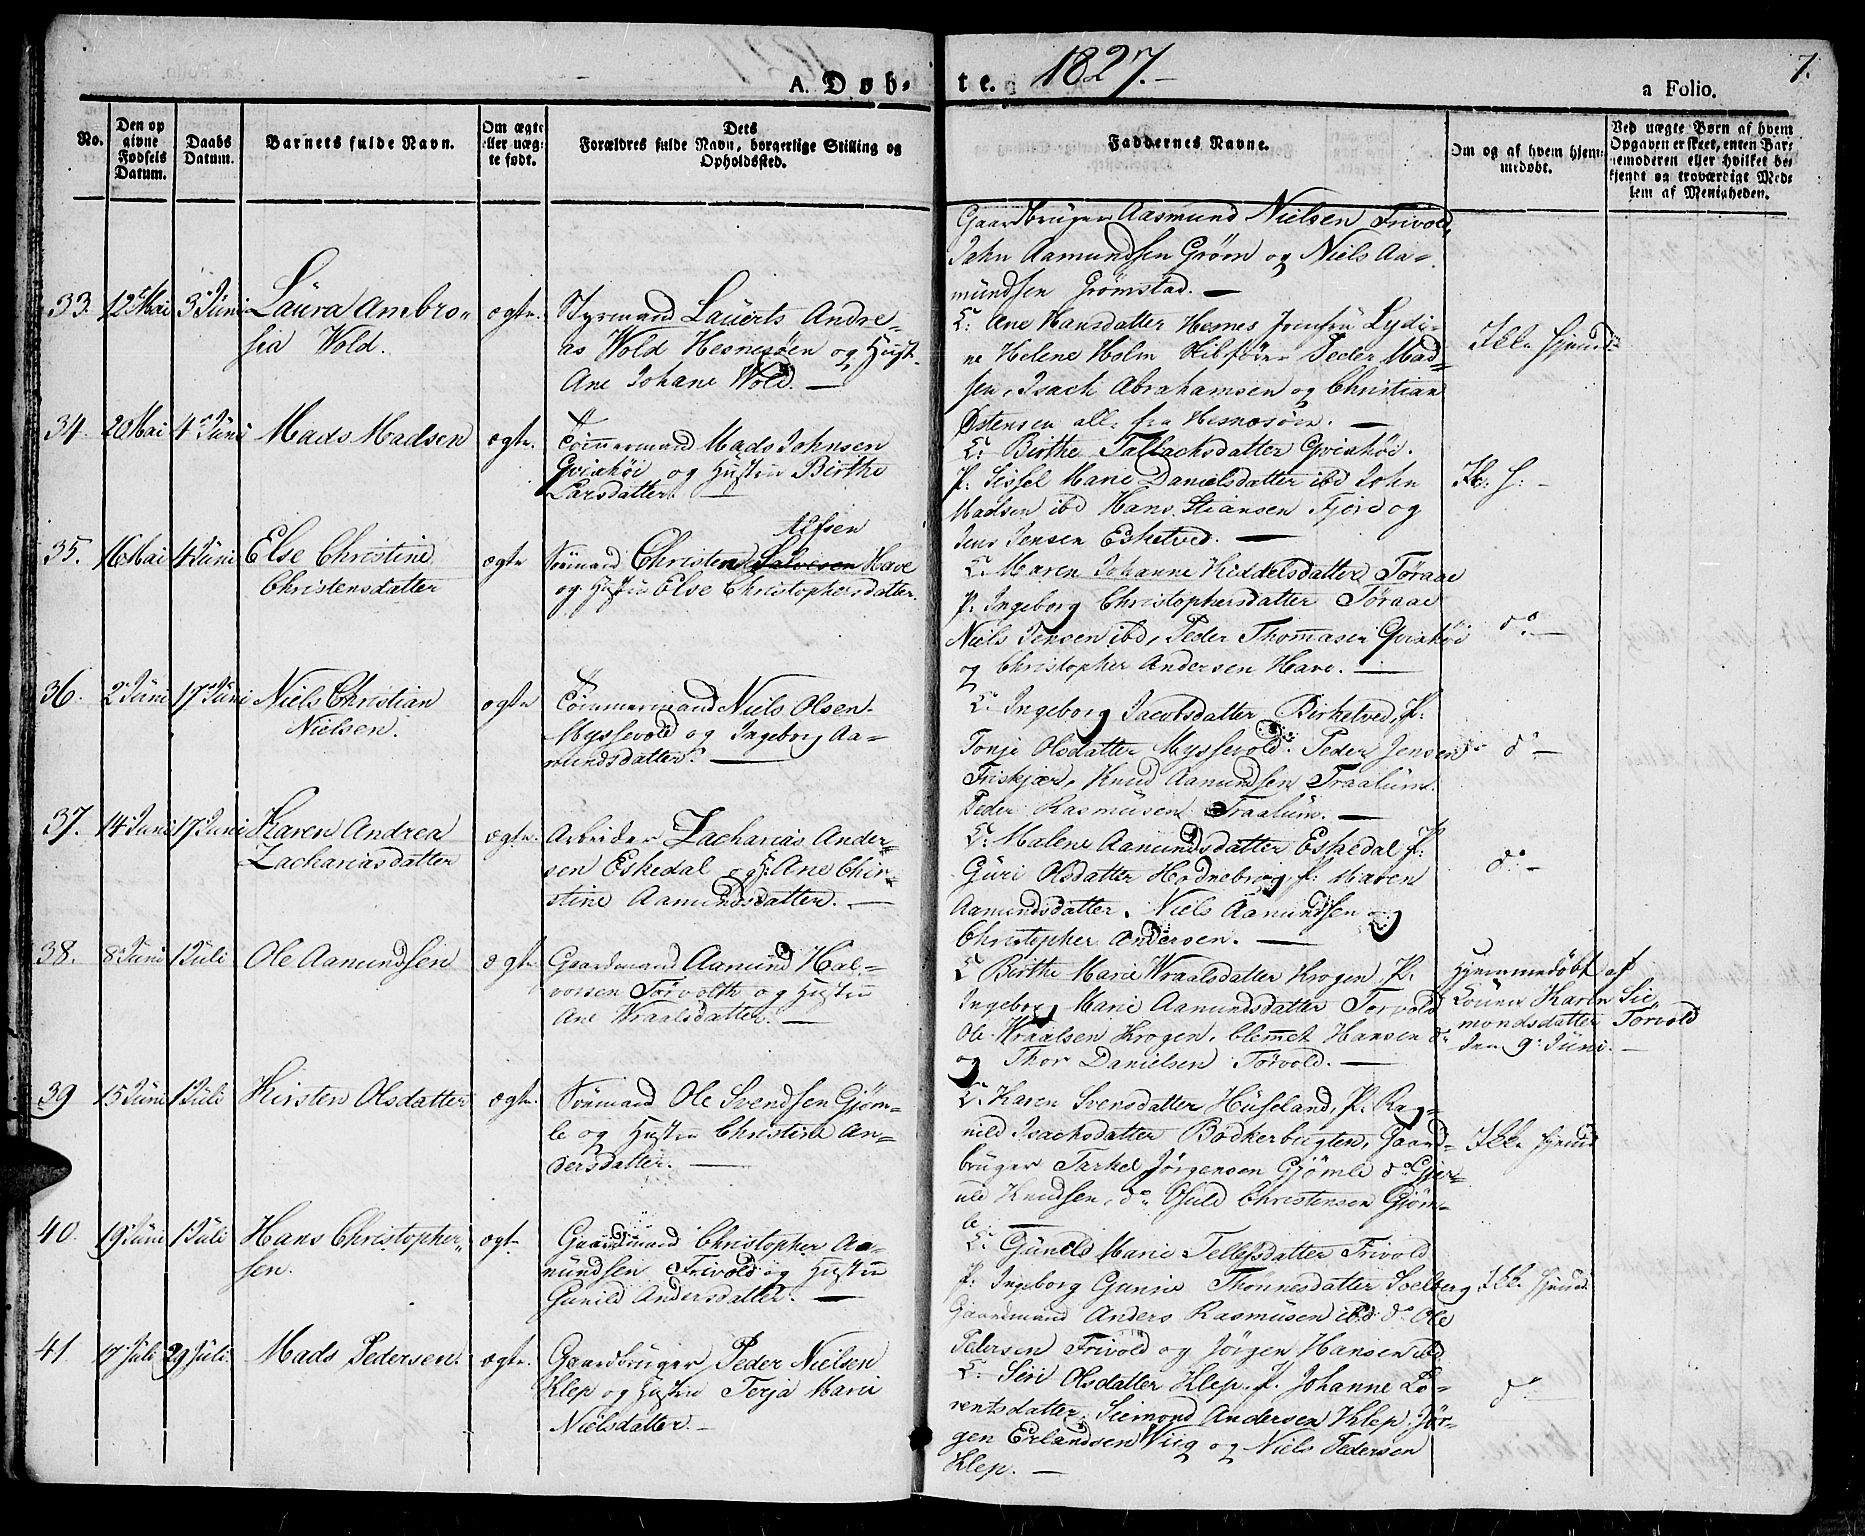 A. Døb-
te.
1827.-
7.
a Folio.
No.
Den op
givne
Fødsels
Datum.
Daabs
Datum.
Barnets fulde Navn.
Om ægte
eller uæg-
te født.
Dets
Forældres fulde Navn, borgerlige Stilling og
Opholdssted.
Faddernes Navne.
Om og af hvem hjem-
medøbt.
Ved uægte Børn af hvem
Opgaven er skeet, enten Bar-
nemoderen eller hvilket be-
kjendt og troværdigt Med-
lem af Menigheden.
Gaardbruger Aasmund Nielsen Frivold,
Jahn Aamundsen Grøm og Niels Aa-
mundsen Grømstad. —
33. 12 Mai 3 Juni Laura Ambro-
sia Wold.
ægte.
Styrmand Lauerts Andre-
as Wold Hesnesøen og Hust.
Ane Johane Wold. —
Ane Hansdatter Hesnes Jomfru Lydi-
ne Helene Holm Skibfører Peder Mad-
sen, Isach Abrahamsen og Christian
Østensen alle fra Hesnesøen. —
Ikke hjemd
34. 20 Mai 4 Juni Mads Madsen
ægte.
Tømmermand Mads Johnsen
Qvixhøi og Hustru Birthe
Larsdatter —
Birthe Tallachsdatter Qvixhøi.
P: Sissel Marie Danielsdatter ibd John
Madsen ibd Hans Stiansen Fjere og
Jens Jensen Eskelved. —
Ik: H: -
35. 16 Mai 4 Juni Else Christine
Christensdatter
ægte
Alfsen
Sømand Christen Salvesen Have
og Hustru Else Christophersdatter.
Maren Johanne Kiddelsdatter Tøraae
P: Ingeborg Christophersdatter Tøraae
Niels Jensen ibd, Peder Thommasen Qvixhøi
og Christopher Andersen Have. —
do. —
36. 2 Juni 17 Juni Niels Christian
Nielsen.
ægte
Tømmermand Niels Olsen
Myssevold og Ingeborg Aa-
mundsdatter. —
Ingeborg Jacobsdatter Birketved, P:
Tonje Olsdatter Myssevold. Peder Jensen
Friskjær, Knud Aamundsen Traalum.
Peder Rasmusen Traalum. —
do —
37. 14 Juni 17 Juni Karen Andrea
Zachariasdatter
ægte.
Arbeider Zacharias Ander-
sen Eskedal og H: Ane Chir-
stine Aamundsdatter. —
Malene Aamundsdatter Eskedal P:
Guri Olsdatter Hodnebrog, P: Maren
Aamundsdatter. Niels Aamundsen og
Christopher Andersen. —
do. -
38. 8 Juni 1 Juli Ole Aamundsen
ægte.
Gaardmand Aamund Hal-
vorsen Torvolth og Hustru
Ane Wraalsdatter. —
Birthe Marie Wraalsdatter Krogen, P:
Ingeborg Marie Aamundsdatter Torvold
Ole Wraalsen Krogen, Clemmet Hansen do
og Thor Danielsen Torvold. —
Hjemmedøbt af
Karen Sie-
mondsdatter Torvold
den 9 Juni. —
39 15 Juni 1 Juli Kirsten Olsdatter
ægte.
Sømand Ole Svendsen Gjøm-
le og Hustru Christine An-
dersdatter. —
Karen Svensdatter Huseland, P: Rag-
nild Isachsdatter Bodkerbugten, Gaard-
bruger Tarkel Jørgensen Gjømle do Gjer-
uld Knudsen, do Osuld Christensen Gjøm-
le. —
Ikke hjemd
40. 19 Juni 1 Juli Hans Christopher-
sen.
ægte
Gaardmand Christopher Aa-
mundsen Frivold og Hustru
Gunild Andersdatter. —
Guneld Marie Tellefsdatter Frivold
P: Ingeborg Gunie Thommesdatter Soelberg
Gaardmand Anders Rasmusen ibd do Ole
Pedersen Frivold og Jørgen Hansen ibd
Ikke hjemd.
41. 17 Juli 29 Juli. Mads Pedersen.
ægte.
Gaardbruger Peder Nielsen
Klep og Hustru Terja Marie
Nielsdatter. -
Siri Olsdatter Klep. P. Johanne Lo-
rentsdatter, Siemond Andersen Klep. Jør-
gen Erlandsen Viig og Niels Pedersen
Klep. —
do —